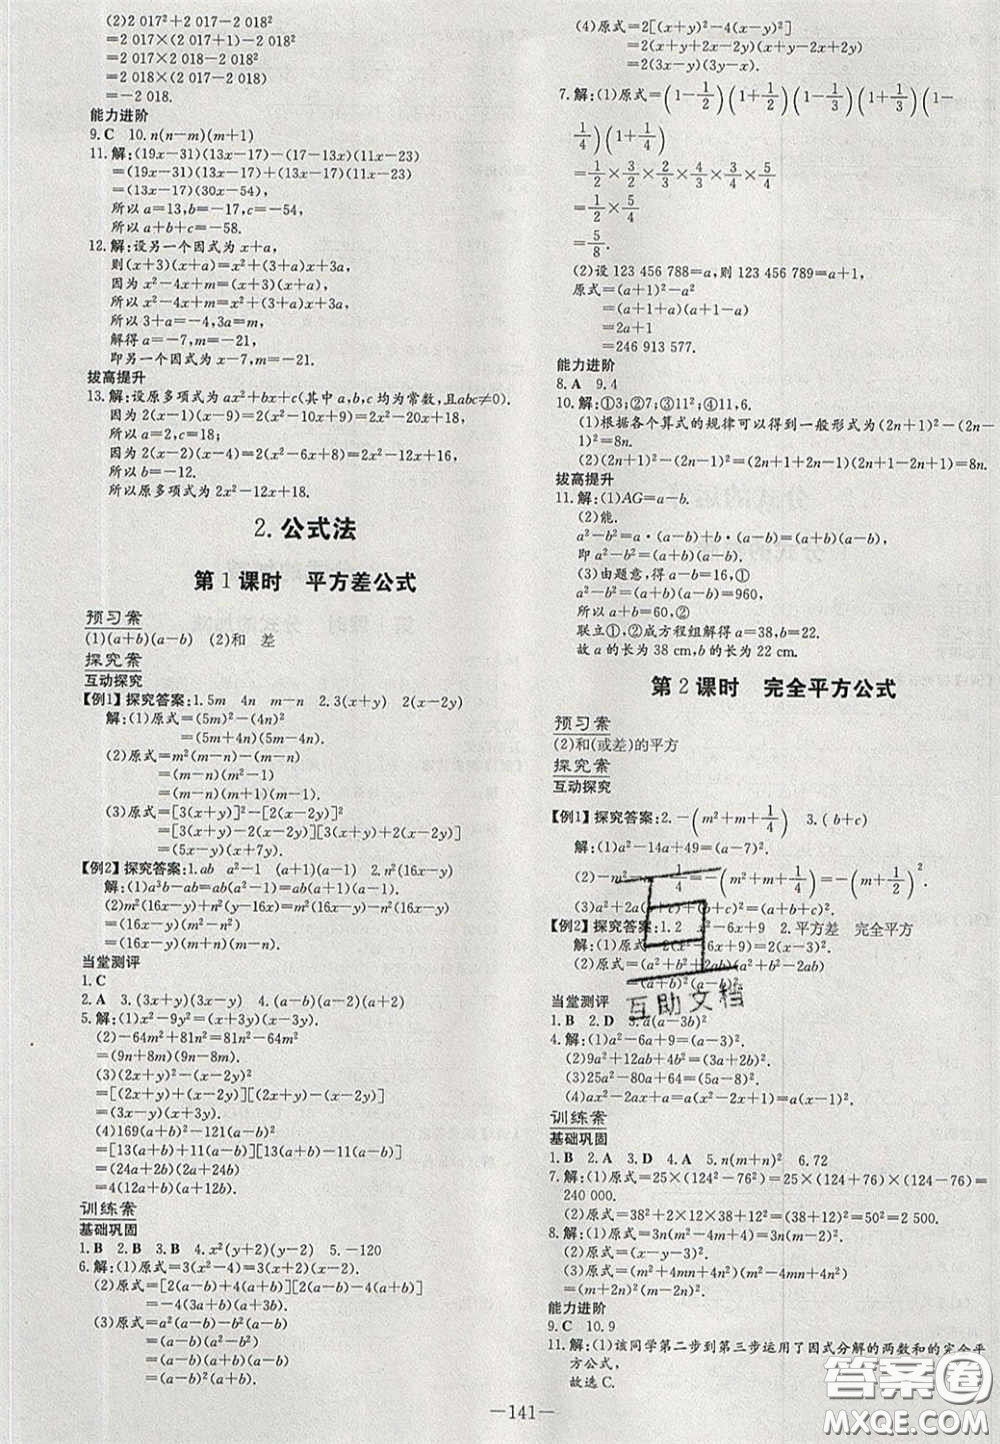 (2)2 017²+2 017-2 018²
=2 017×(2 017+1)-2 018²
=2 017×2 018-2 018²
=2 018×(2 017-2 018)
=-2 018.
能力进阶
9.C 10.n(n-m)(m+1)
11.解:(19x-31)(13x-17)-(17-13x)(11x-23)
=(19x-31)(13x-17)+(13x-17)(11x-23)
=(13x-17)(30x-54),
所以a=13,b=-17,c=-54,
所以a+b+c=-58.
12.解:设另一个因式为x+a,
则(x+3)(x+a)=x²+(3+a)x+3a,
因为x²-4x+m=x²+(3+a)x+3a,
所以x²-4x+m=x²+(3+a)x+3a,
所以3+a=-4,3a=m,
解得a=-7,m=-21,
即另一个因式为x-7,m=-21.
拔高提升
13.解:设原多项式为ax²+bx+c(其中a,b,c均为常数,且abc≠0).
因为2(x-1)(x-9)=2(x²-10x+9)=2x²-20x+18,
所以a=2,c=18;
因为2(x-2)(x-4)=2(x²-6x+8)=2x²-12x+16,
所以b=-12.
所以原多项式为2x²-12x+18.
2.公式法
第1课时 平方差公式
预习案
(1)(a+b)(a-b) (2)和 差
探究案
互动探究
【例1】探究答案:1.5m 4n m-n 2.3(x+y) 2(x-2y)
解:(1)原式=(5m)²-(4n)²
=(5m+4n)(5m-4n).
(2)原式=m²(m-n)-(m-n)
=(m-n)(m²-1)
=(m-n)(m+1)(m-1).
(3)原式=[3(x+y)]²-[2(x-2y)]²
=[3(x+y)-2(x-2y)][3(x+y)+2(x-2y)]
=(5x-y)(x+7y).
【例2】探究答案:1.ab a²-1 (a+1)(a-1) 2.n²(16x-y)
解:(1)a³b-ab=ab(a²-1)=ab(a+1)(a-1).
(2)m²(16x-y)+n²(y-16x)=m²(16x-y)-n²(16x-y)
=(16x-y)(m²-n²)
=(16x-y)(m+n)(m-n).
当堂测评
1.C
2.A 3.(3x+y)(3x-y) 4.(a-b)(a-b+1)
5.解:(1)x²-9y²=(x+3y)(x-3y).
(2)-64m²+81n²=81n²-64m²
=(9n+8m)(9n-8m).
(3)(2x+y)²-(x-2y)²
=[(2x+y)+(x-2y)][(2x+y)-(x-2y)]
=(3x-y)(x+3y).
(4)169(a+b)²-121(a-b)²
=[13(a+b)+11(a-b)][13(a+b)-11(a-b)]
=(24a+2b)(2a+24b)
=4(12a+b)(a+12b).
训练案
基础巩固
1.B 2.B 3.B 4.x²(y+2)(y-2) 5.-120
6.解:(1)原式=3(x²-4)=3(x+2)(x-2).
(2)原式=[2(a-b)+4(a+b)][2(a-b)-4(a+b)]
=-4(3a+b)(a+3b).
(3)原式=a²(a-b)-b²(a-b)
=(a-b)(a²-b²)
=(a-b)(a+b)(a-b)
=(a-b)²(a+b).
(4)原式=2[(x+y)²-(x-2y)²]
=2(x+y+x-2y)(x+y-x+2y)
=2(3y)(2x-y)
7.解:(1)原式=(1-1/2)(1+1/2)(1-1/3)(1+1/3)(1-
1/4)(1+1/4)
=1/2×3/2×2/3×4/3×3/4×5/4
=1/2×5/4
=5/8.
(2)设123 456 788=a,则123 456 789=a+1,
原式=(a+1)²-a²
=(a+1+a)(a+1-a)
=2a+1
=246 913 577.
能力进阶
8.A 9.4
10.解:①3;②7;③11²;④11,6.
(1)根据各个算式的规律可以得到一般形式为(2n+1)²-(2n-
1)²=8n.
(2)(2n+1)²-(2n-1)²=(2n+1+2n-1)(2n+1-2n+1)=8n.
拔高提升
11.解:(1)AG=a-b.
(2)能.
a²-b²=a·(a-b)+b·(a-b)=(a+b)(a-b),
即a²-b²=(a+b)(a-b).
(3)由题意,得a-b=16,①
a²-b²=(a+b)(a-b)=960,
所以a+b=60,②
联立①,②成方程组解得a=38,b=22.
故a的长为38 cm,b的长为22 cm.
第2课时 完全平方公式
预习案
(2)和(或差)的平方
探究案
互动探究
【例1】探究答案:2.-(m²+m+1/4) 3.(b+c)
解:(1)a²-14a+49=(a-7)².
(2)-m²-m-1/4=-(m²+m+1/4)=-(m+1/2)².
(3)a²+2a(b+c)+(b+c)²=(a+b+c)².
【例2】探究答案:1.2 x²-6x+9 2.平方差 完全平方
解:(1)原式=2(x²-6x+9)=2(x-3)².
(2)原式=(a²+b²+2ab)(a²+b²-2ab)
=(a+b)²(a-b)².
当堂测评
1.B 2.D 3.a(a-3b)²
4.解:(1)a²-6a+9=(a-3)².
(2)9a²+12ab+4b²=(3a+2b)².
(3)25a²-80a+64=(5a-8)².
(4)ax²-2ax+a=a(x²-2x+1)=a(x-1)².
训练案
基础巩固
1.B 2.B 3.D 4.A 5.n(m+n)² 6.72
7.解:(1)原式=25×(124²-76²)=25×(124+76)×(124-76)=
240 000.
(2)原式=38²+2×12×38+12²=(38+12)²=50²=2 500.
8.解:(1)原式=3n(m²-4m+4)=3n(m-2)².
(2)原式=(x-y-1)².
(3)原式=(m²+4mn+4n²)(m²-4mn+4n²)
=(m+2n)²(m-2n)².
能力进阶
9.C 10.9
11.解:(1)该同学第二步到第三步运用了因式分解的两数和的完全平
方公式,
故选C.
—141—
互助文档
答案圈
MXQE.COM